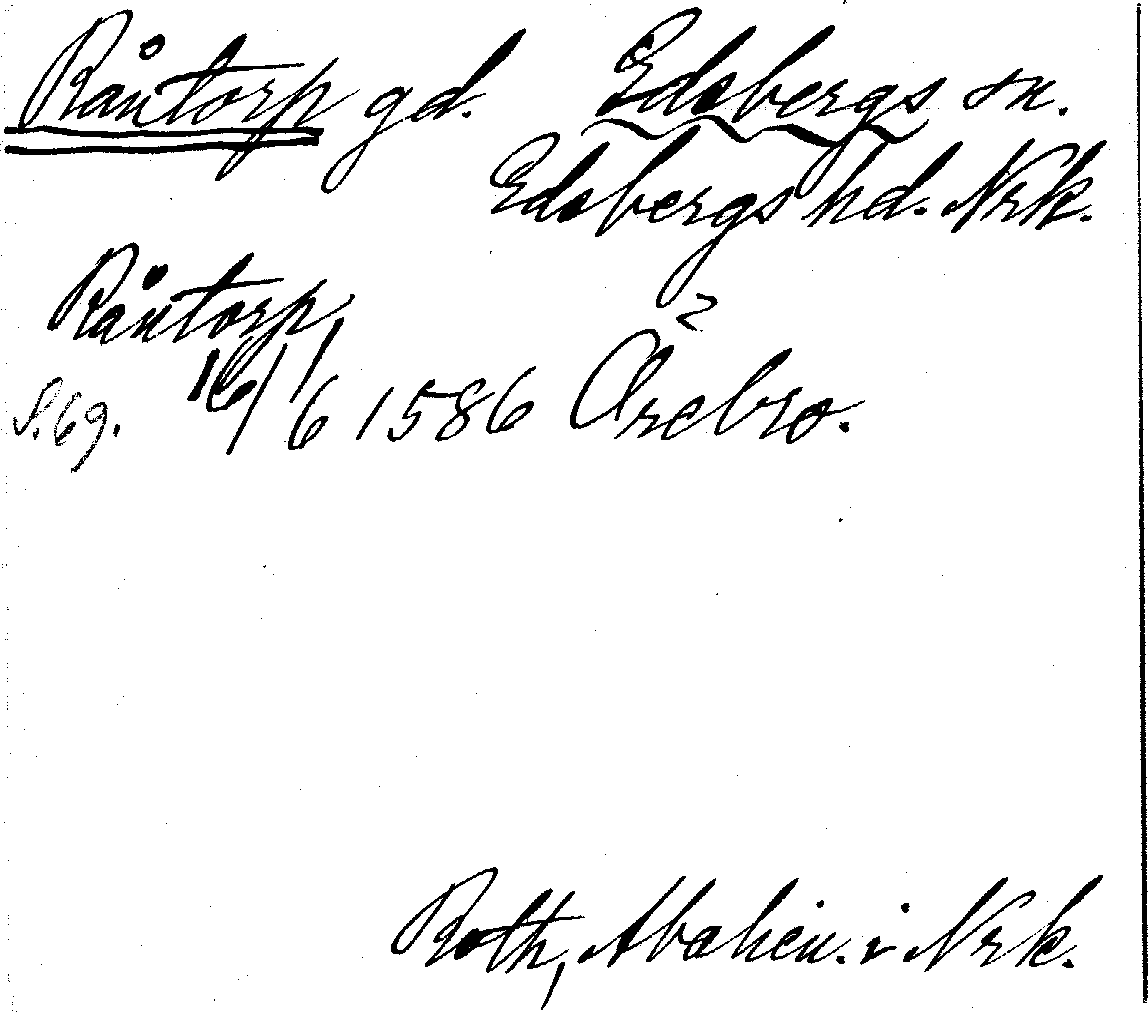 Råntorp gd. Edsbergs sn.
Edsbergs hd. Nrk.
Råntorp,
S. 69. 16/6 1586 Örebro.
Roth, Abalien. i Nrk.